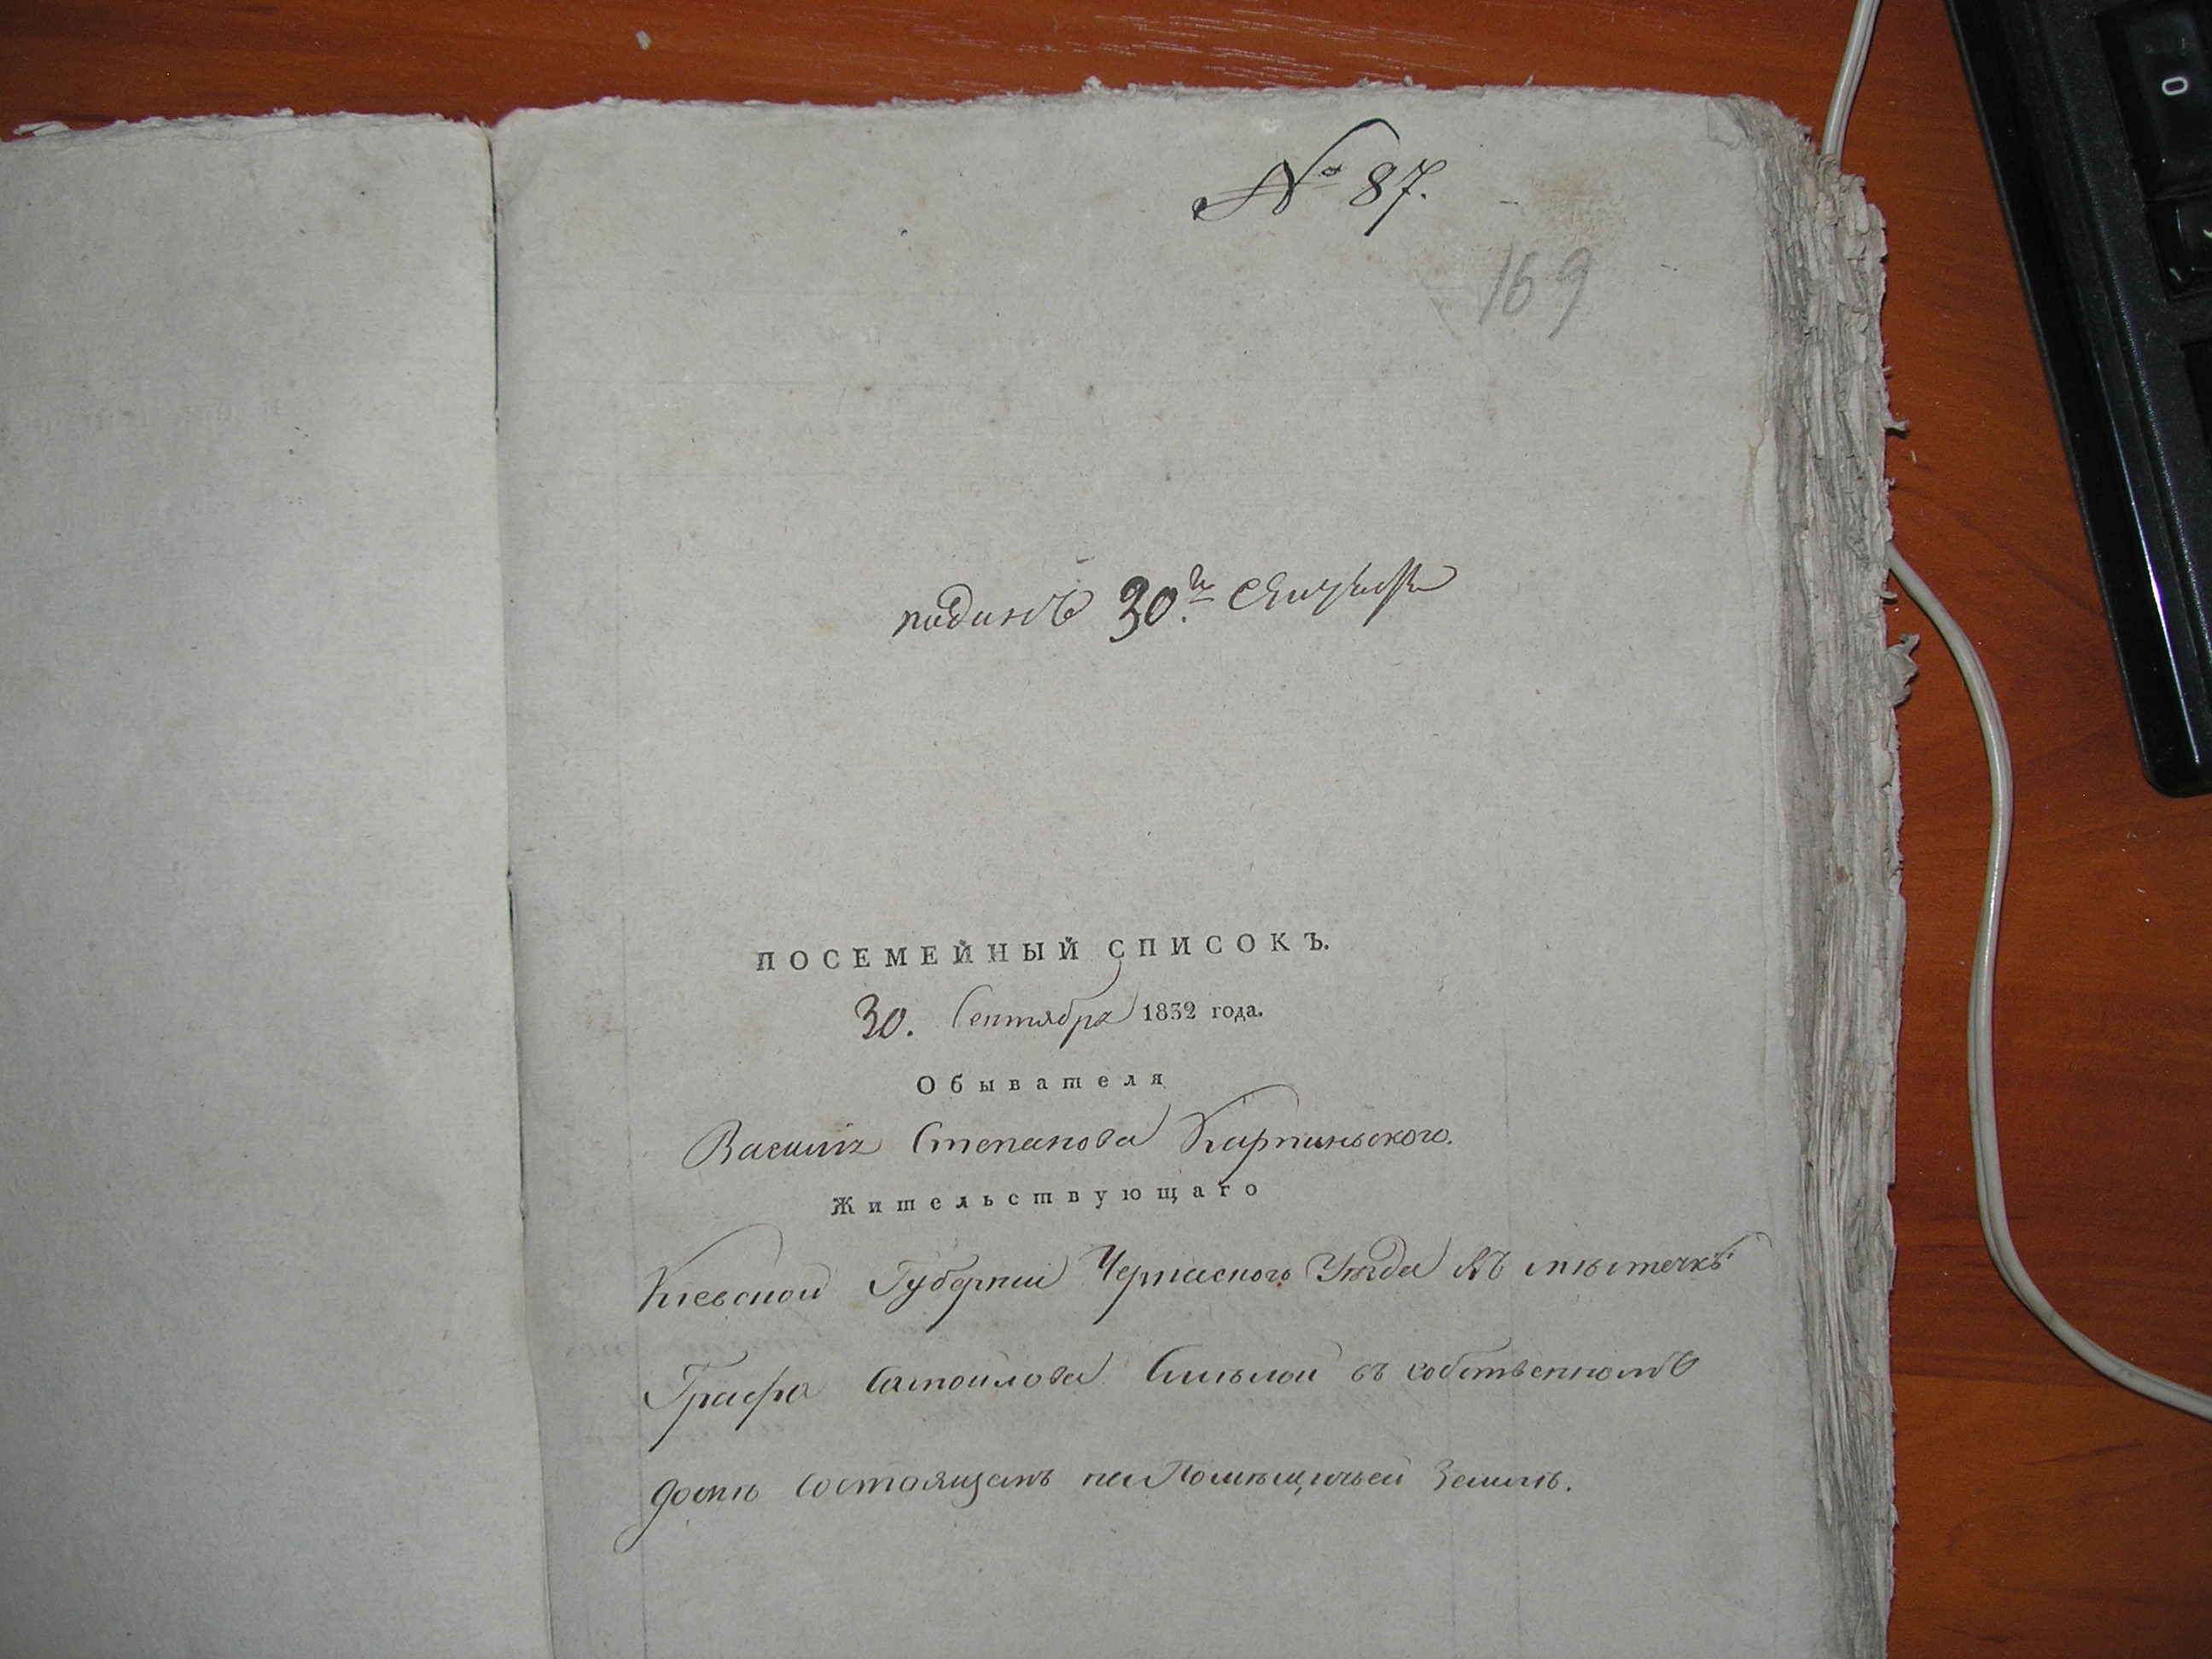 № 87.
169
поданъ 30го Сентября
ПОСЕМЕЙНЫЙ СПИСОКЪ.
30. Сентября 1832 года.
Обывателя
Василія Степанова Карпиньского.
Жительствующаго
Кіевской Губерніи Черкаского Уезда въ мѣстечкѣ
Графа Самойлова Смѣлой въ собственномъ
домѣ состоящемъ на Помѣщичьей Землѣ.
0